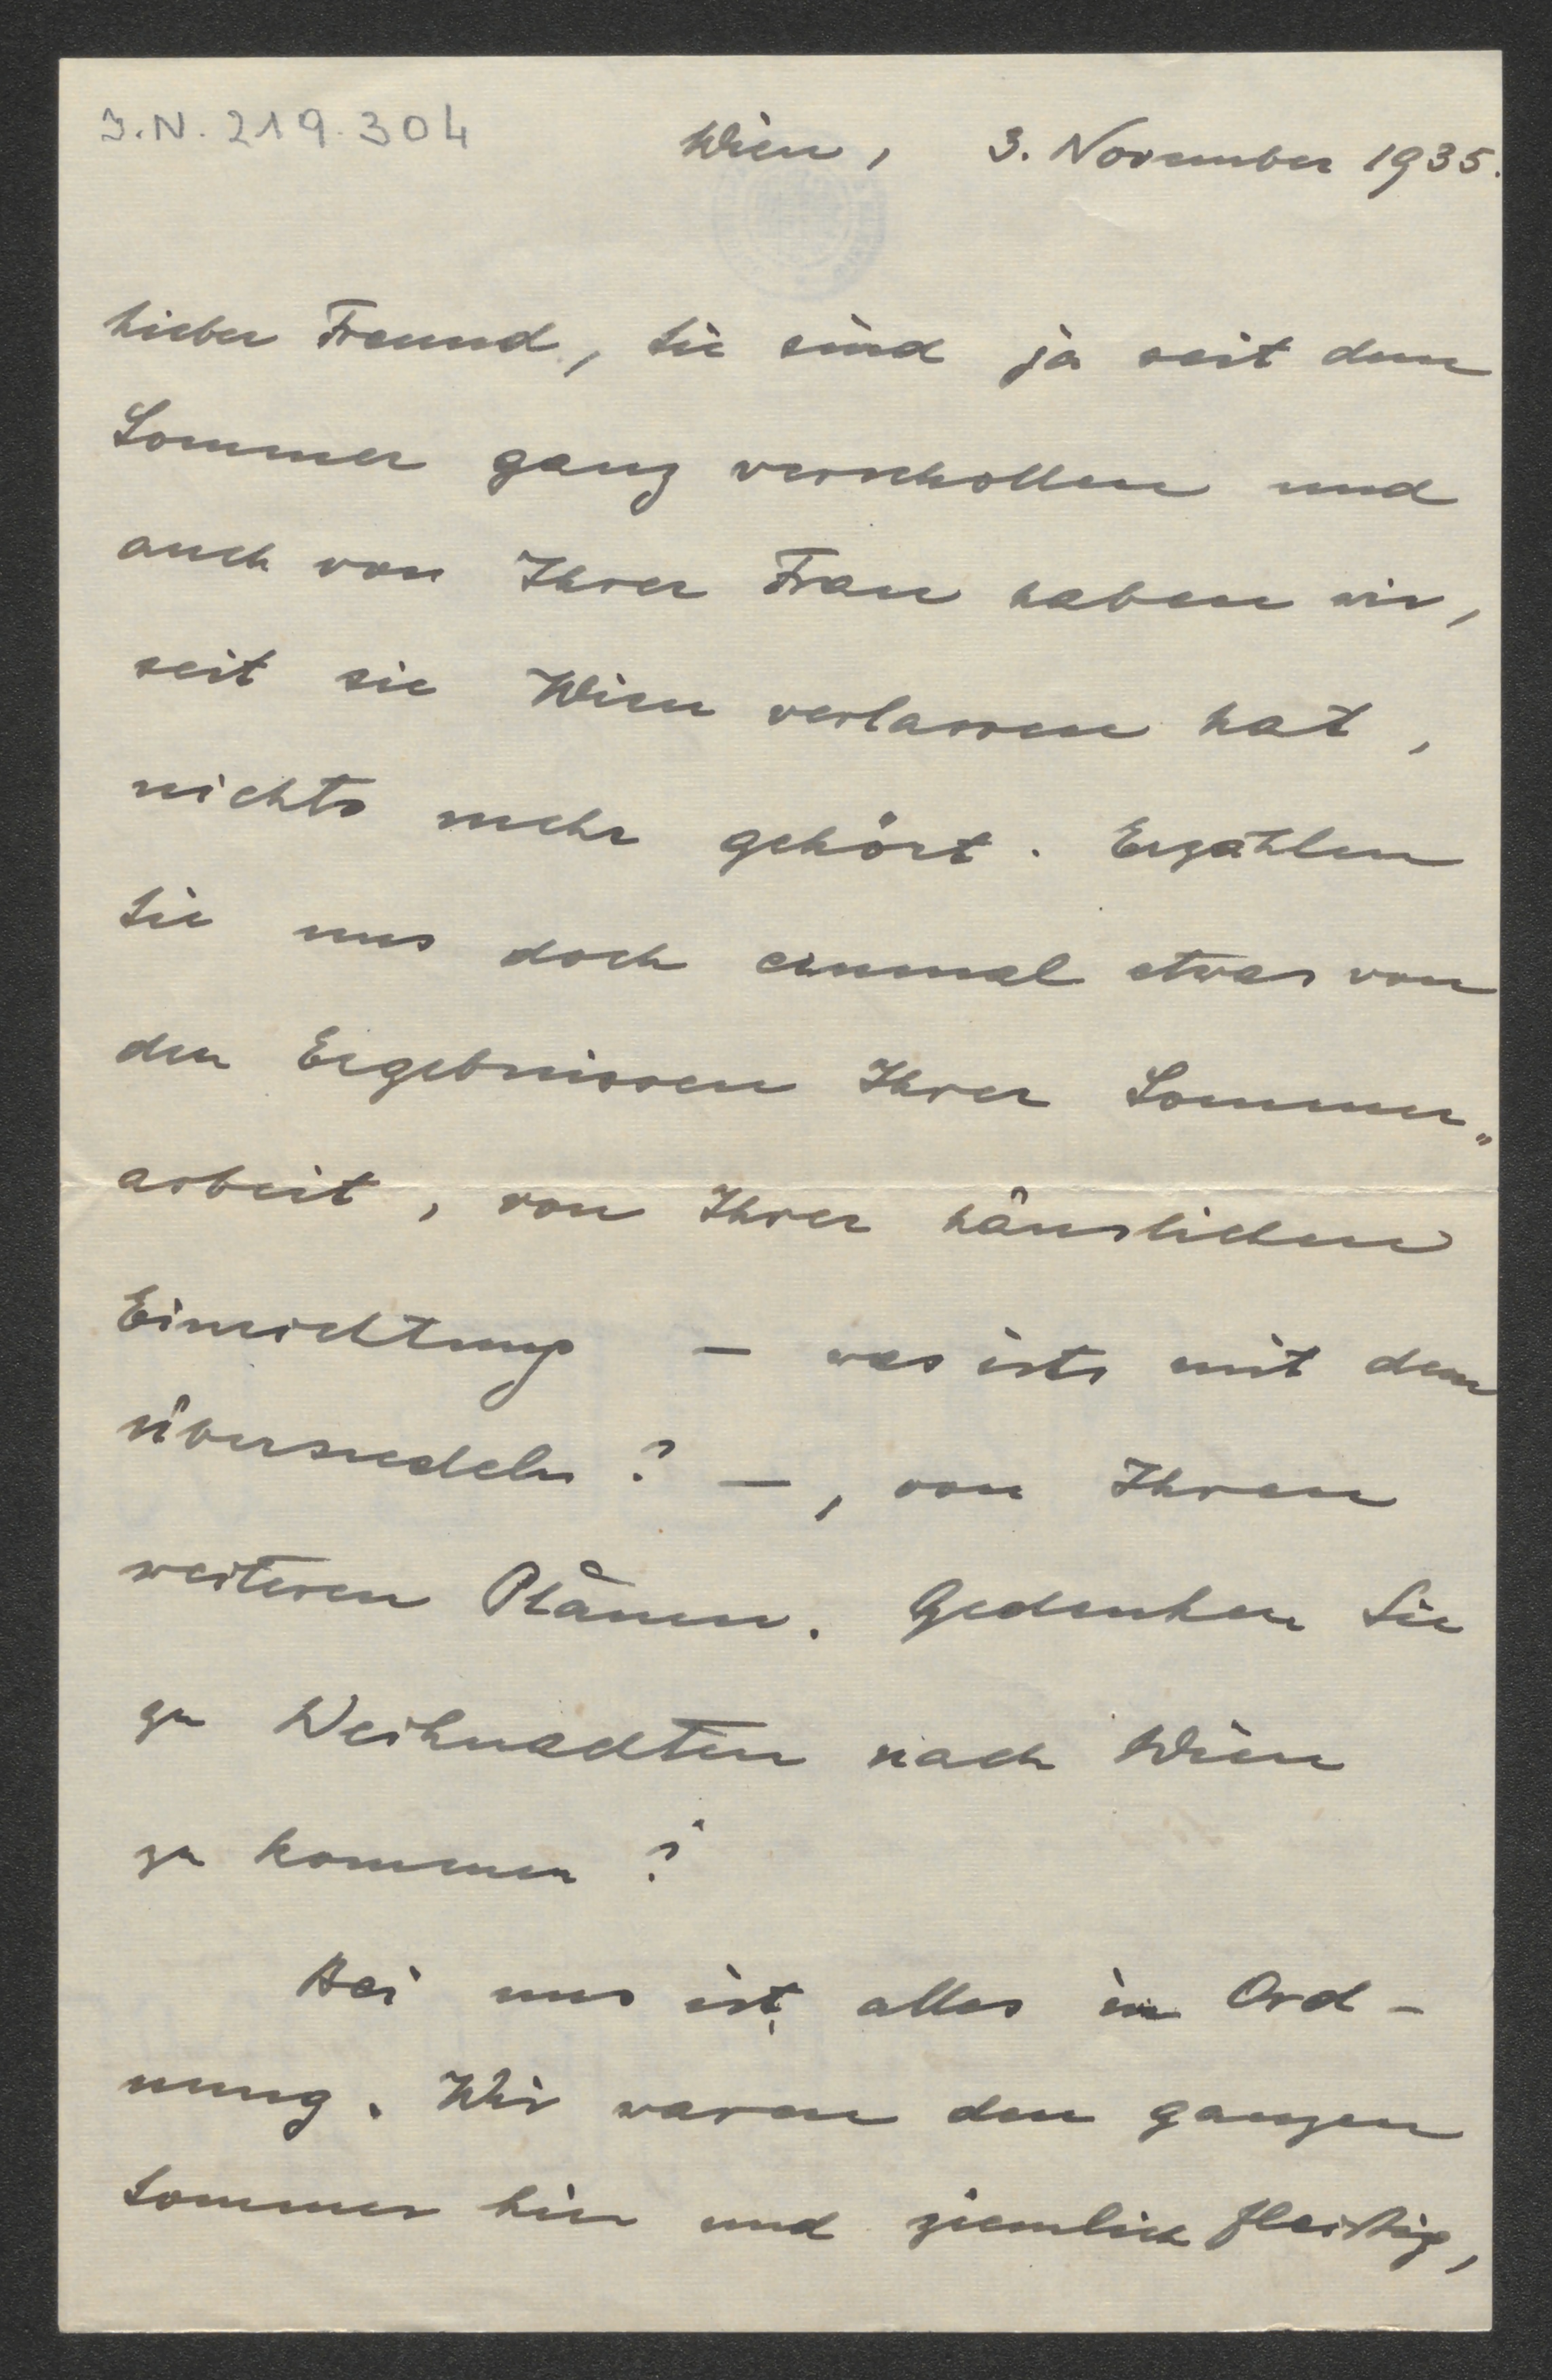 J.N. 219.304
Wien, 3. November 1935.
Lieber Freund, Sie sind ja seit dem
Sommer ganz verschollen und
auch von Ihrer Frau haben wir,
seit sie Wien verlassen hat,
nichts mehr gehört. Erzählen
Sie uns doch einmal etwas von
den Ergebnissen Ihrer Sommer„
arbeit, von Ihrer häuslichen
Einrichtung – was ists mit dem
übersiedeln? –, von Ihren
weiteren Plänen. Gedenken Sie
zu Weihnachten nach Wien
zu kommen?
Bei uns ist alles in Ord-
nung. Wir waren den ganzen
Sommer hier und ziemlich fleißig,